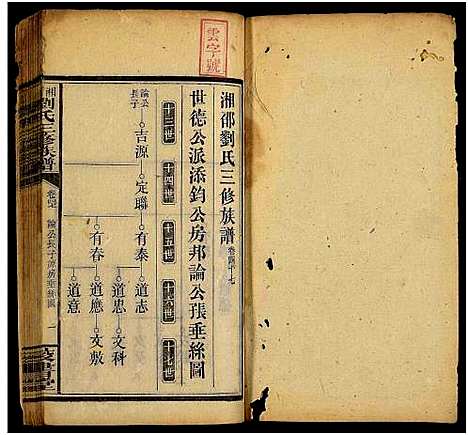 雲字號
湘邵劉氏三修族譜 卷四十七
世德公派添鈞公房邦論公張垂絲圖
十三世
十四世
十五世
十六世
十七世
論公長子
吉源
定聯
有泰
道志
道忠
文科
有春
道應
文敷
道意
湘邵劉氏三修族譜
論公長子
垂絲圖
一